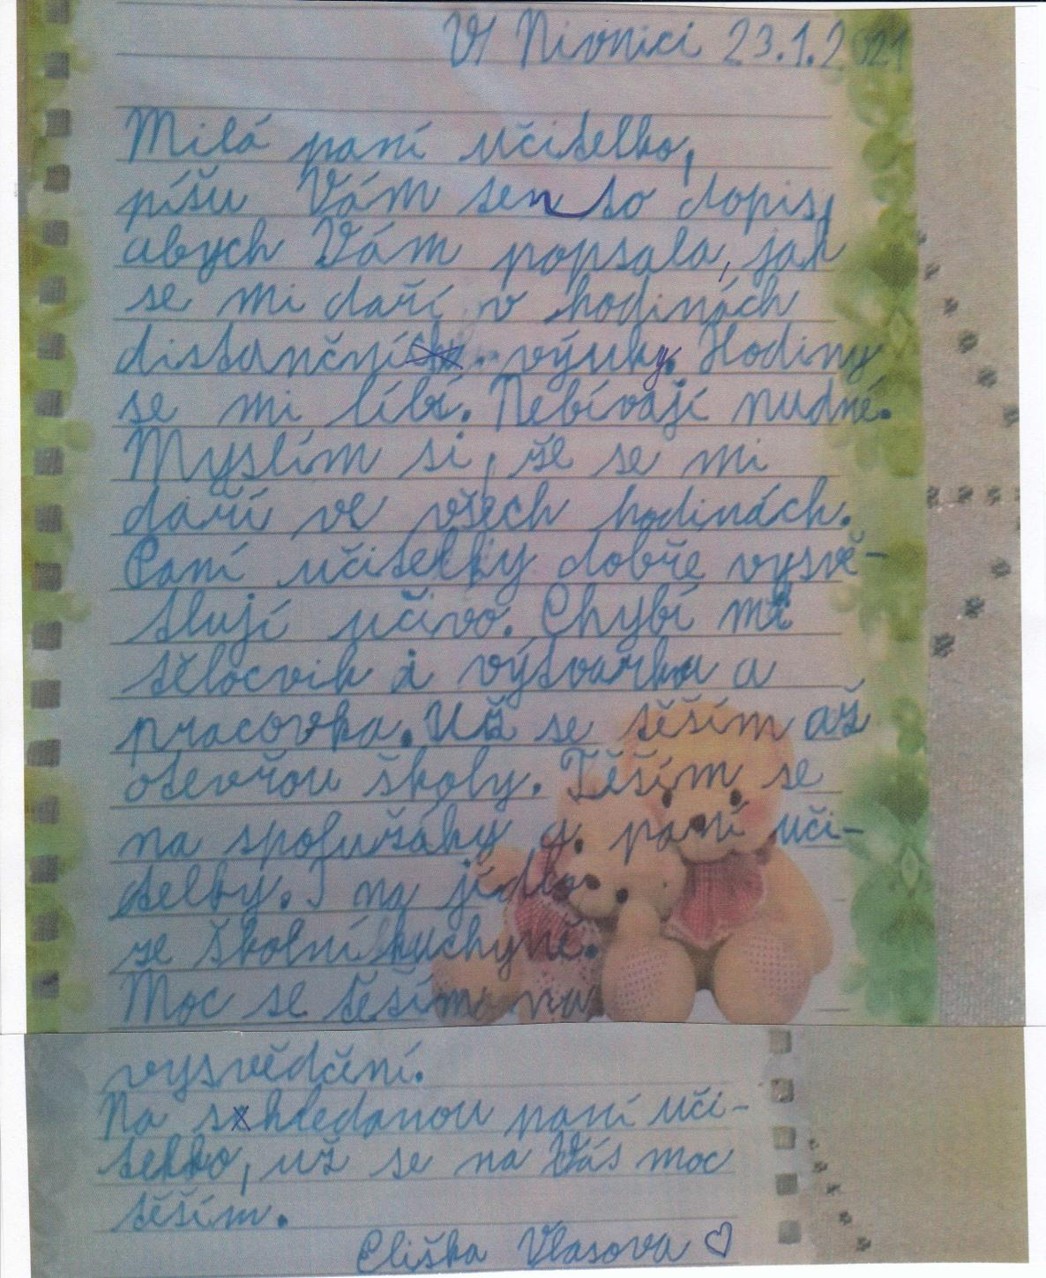 V Nivnici 23.1.2021
Milá paní učitelko,
píšu Vám tento dopis,
abych Vám popsala, jak
se mi daří v hodinách
distanční výuky. Hodiny
se mi líbí. Nebívají nudné.
Myslím si, že se mi
daří ve všech hodinách.
Paní učitelky dobře vysvě-
tlují učivo. Chybí mi
tělocvik i výtvarka a
pracovka. Už se těším až
otevřou školy. Těším se
na spolužáky a paní uči-
telky. I na jídlo
ze školní kuchyně.
Moc se těším na
vysvědčení.
Na shledanou paní uči-
telko, už se na Vás moc
těším.
Eliška Vlasova ♡